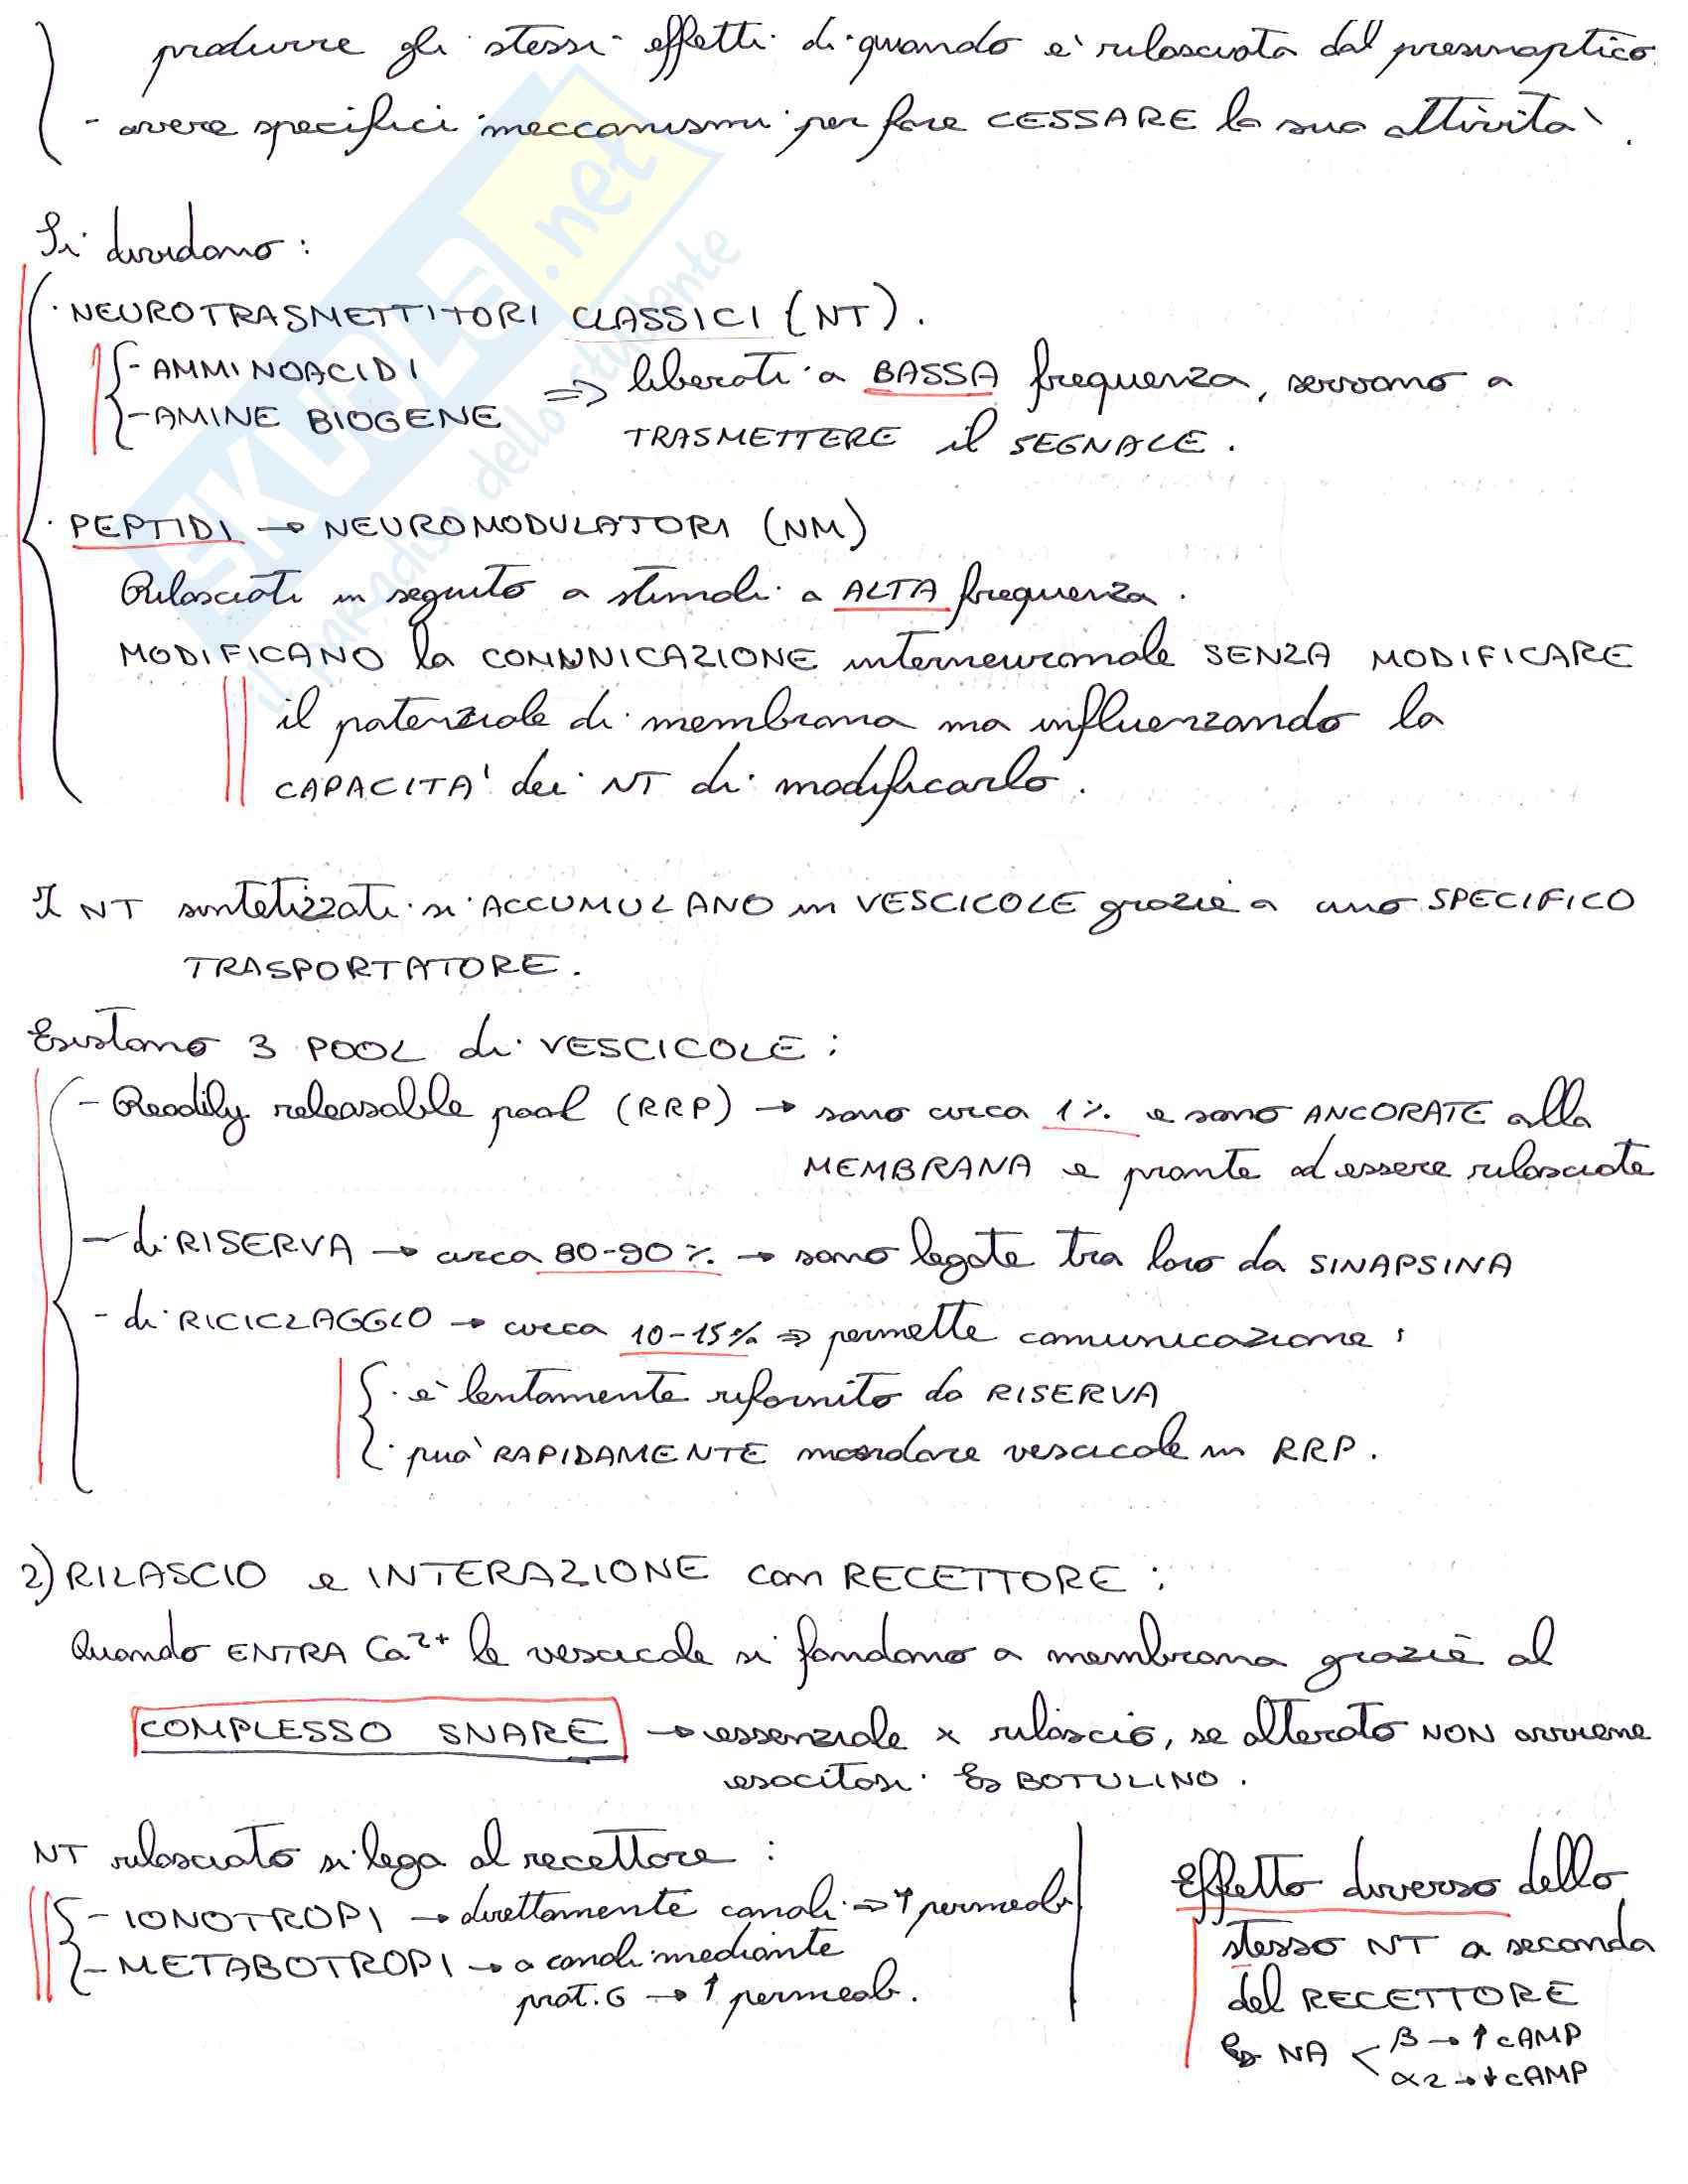 produrre gli stessi effetti di quando è rilasciata dal presinaptico.
- avere specifici meccanismi per fare CESSARE la sua attività.
Si dividono:
· NEUROTRASMETTITORI CLASSICI (NT).
- AMMINOACIDI
- AMINE BIOGENE
⇒ liberati a BASSA frequenza, servono a
TRASMETTERE il SEGNALE.
· PEPTIDI → NEUROMODULATORI (NM)
Rilasciati in seguito a stimoli a ALTA frequenza.
MODIFICANO la COMUNICAZIONE interneuronale SENZA MODIFICARE
il potenziale di membrana ma influenzando la
CAPACITA' dei NT di modificarlo.
I NT sintetizzati si ACCUMULANO in VESCICOLE grazie a uno SPECIFICO
TRASPORTATORE.
Esistono 3 POOL di VESCICOLE:
- Readily releasable pool (RRP) → sono circa 1% e sono ANCORATE alla
MEMBRANA e pronte ad essere rilasciate
- di RISERVA → circa 80-90% → sono legate tra loro da SINAPSINA
- di RICICLAGGIO → circa 10-15% ⇒ permette comunicazione:
· è lentamente rifornito da RISERVA
· può RAPIDAMENTE mandare vescicole in RRP.
2) RILASCIO e INTERAZIONE con RECETTORE:
Quando ENTRA Ca²⁺ le vescicole si fondono a membrana grazie al
COMPLESSO SNARE → essenziale x rilascio, se alterato NON avviene
esocitosi. Es BOTULINO.
NT rilasciato si lega al recettore:
- IONOTROPI → direttamente canali ⇒ ↑ permeab.
- METABOTROPI → a canali mediante
prot. G → ↑ permeab.
Effetto diverso dello
stesso NT a seconda
del RECETTORE
Es NA < β → ↑ cAMP
α2 → ↓ cAMP
SKUOLA.net
il paradiso dello studente